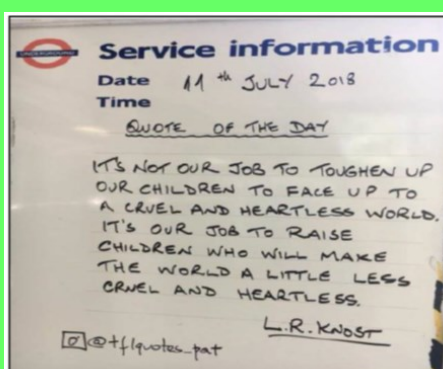 UNDERGROUND
Service information
Date 11th JULY 2018
Time
QUOTE OF THE DAY
IT'S NOT OUR JOB TO TOUGHEN UP
OUR CHILDREN TO FACE UP TO
A CRUEL AND HEARTLESS WORLD.
IT'S OUR JOB TO RAISE
CHILDREN WHO WILL MAKE
THE WORLD A LITTLE LESS
CRUEL AND HEARTLESS.
L.R. KNOST
@tflquotes_pat